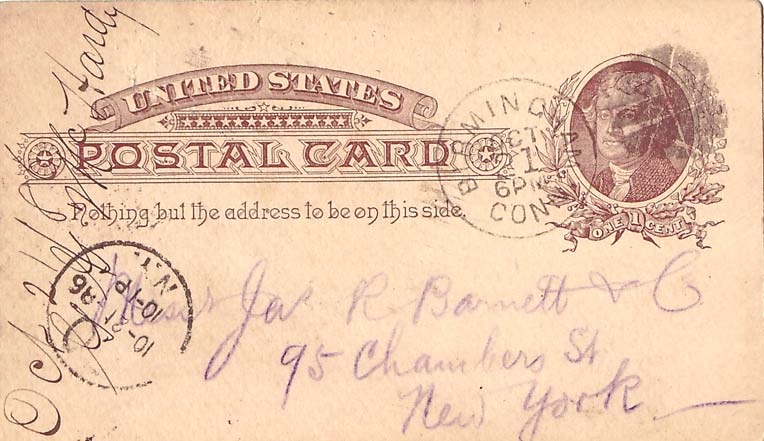 UNITED STATES
POSTAL CARD
Nothing but the address to be on this side.
ONE 1 CENT
BIRMINGHAM
OCT
6 PM
CONN
N.Y.
10-21-86
Messrs Jas R Barnett & Co
95 Chambers St
New York
Oct